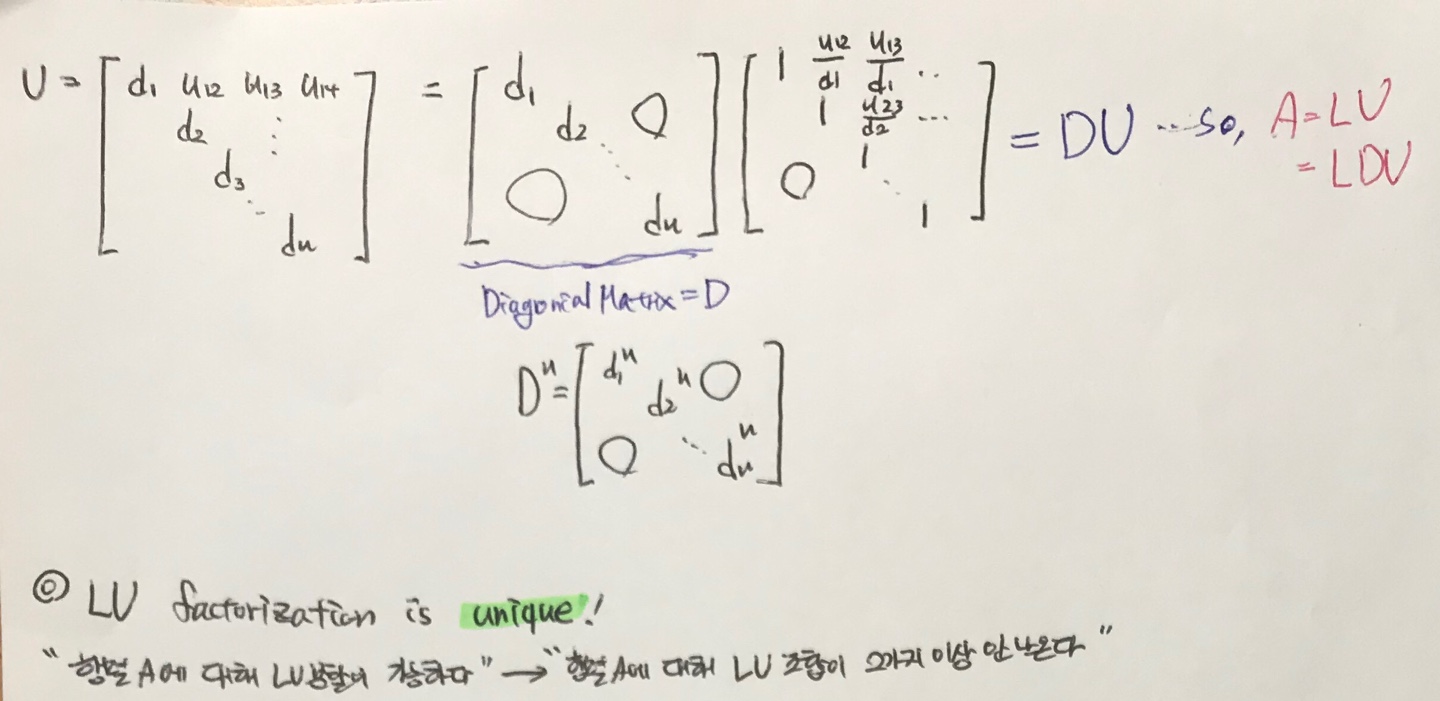 U = [ d1 u12 u13 u14 ⋮ d2 d3 ⋱ dn ] = [ d1 d2 ⋱ dn O O ] [ 1 u12/d1 u13/d1 ‥ 1 u23/d2 … 1 ⋱ 1 O ] = DU … so, A = LU
= LDU
Diagonial Matrix = D
Dⁿ = [ d1ⁿ d2ⁿ O O ⋱ dnⁿ ]
◎ LU factorization is unique!
"행렬 A에 대해 LU분할이 가능하다" → "행렬 A에 대해 LU 조합이 2가지 이상 안 나온다"